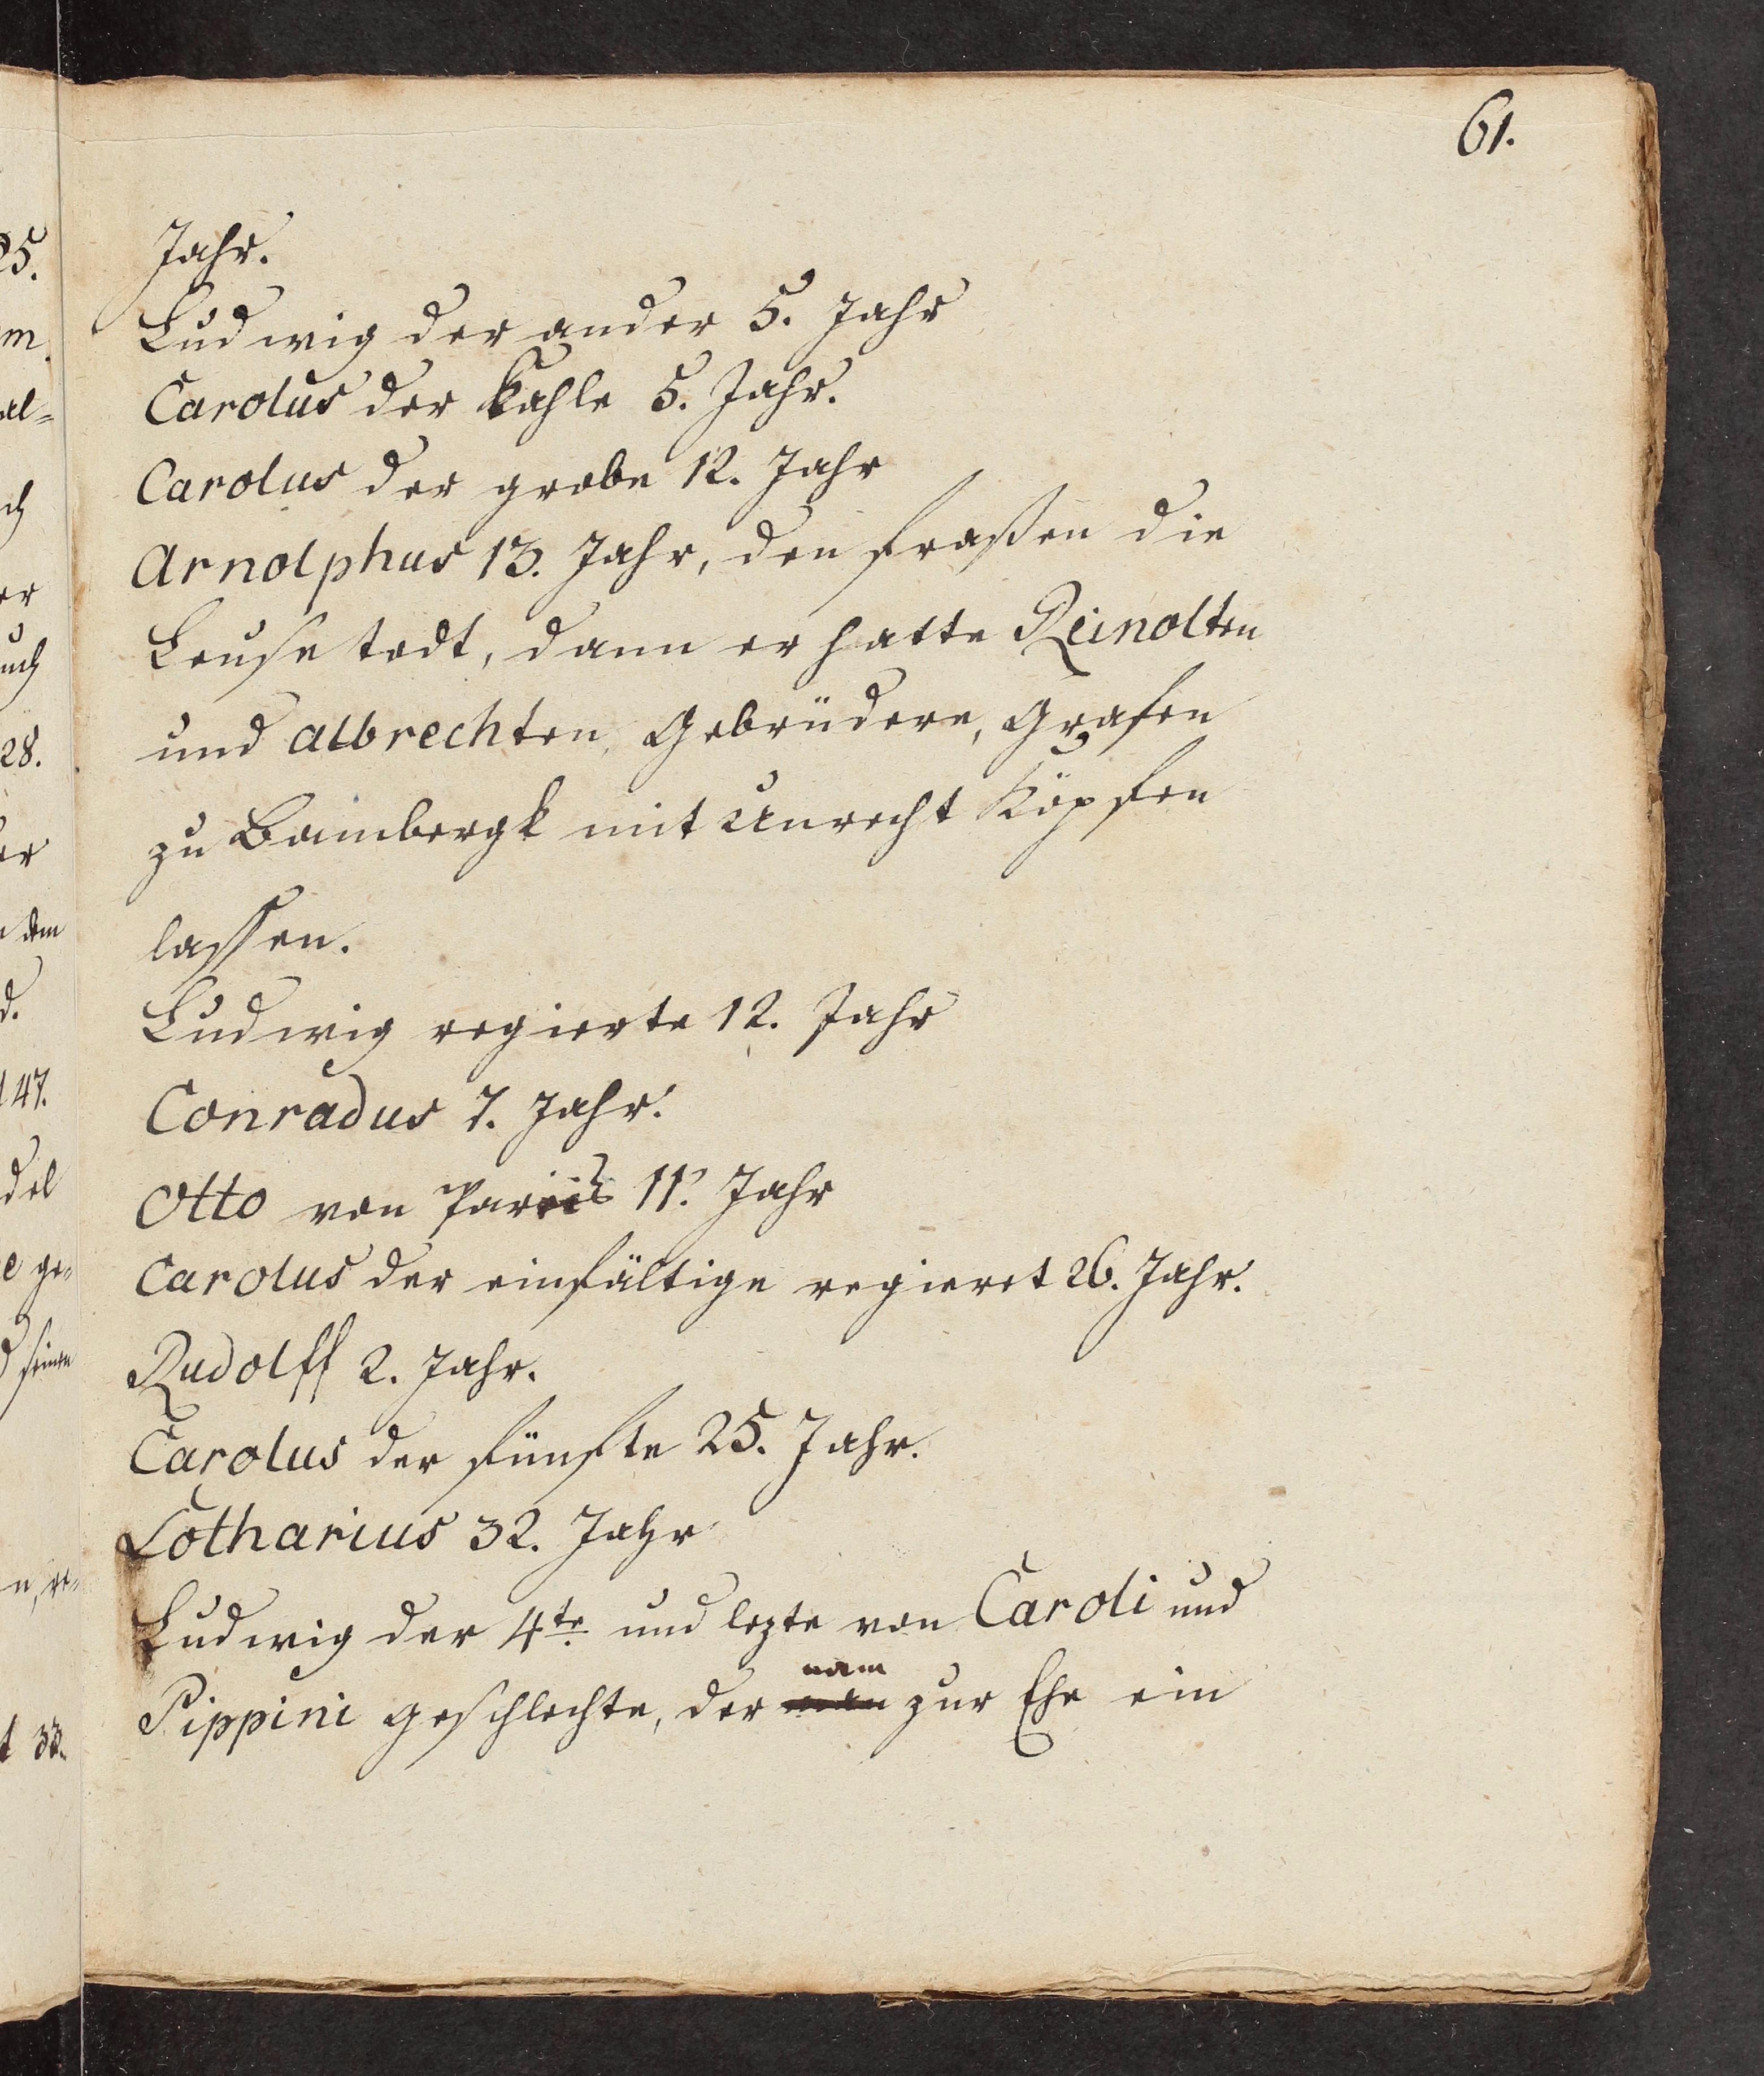 61.
Jahr.
Ludwig der ander 5. Jahr
Carolus der Kahle 5. Jahr.
Carolus der grobe 12. Jahr
Arnolphus 13. Jahr, den fraßen die
Leuse todt, dann er hatte Reinolten
und Albrechten, Gebrüdere, Grafen
zu Bambergk mit Unrecht Köpfen
lassen.
Ludwig regierte 12. Jahr
Conradus 7. Jahr.
Otto von Pariß 11. Jahr
Carolus der einfältige regieret 26. Jahr.
Rudolff 2. Jahr.
Carolus der fünfte 25. Jahr.
Lotharius 32. Jahr
Ludwig der 4te und lezte von Caroli und
nam
Pippini geschlechte, der zur Ehe ein
25.
m.
al=
ch
er
uch
28.
er
dem
d.
147.
del
e ge=
seine
n, re=
t 33.